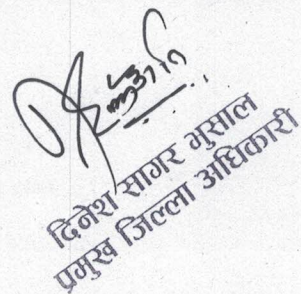 दिनेश सागर भुसाल
प्रमुख जिल्ला अधिकारी